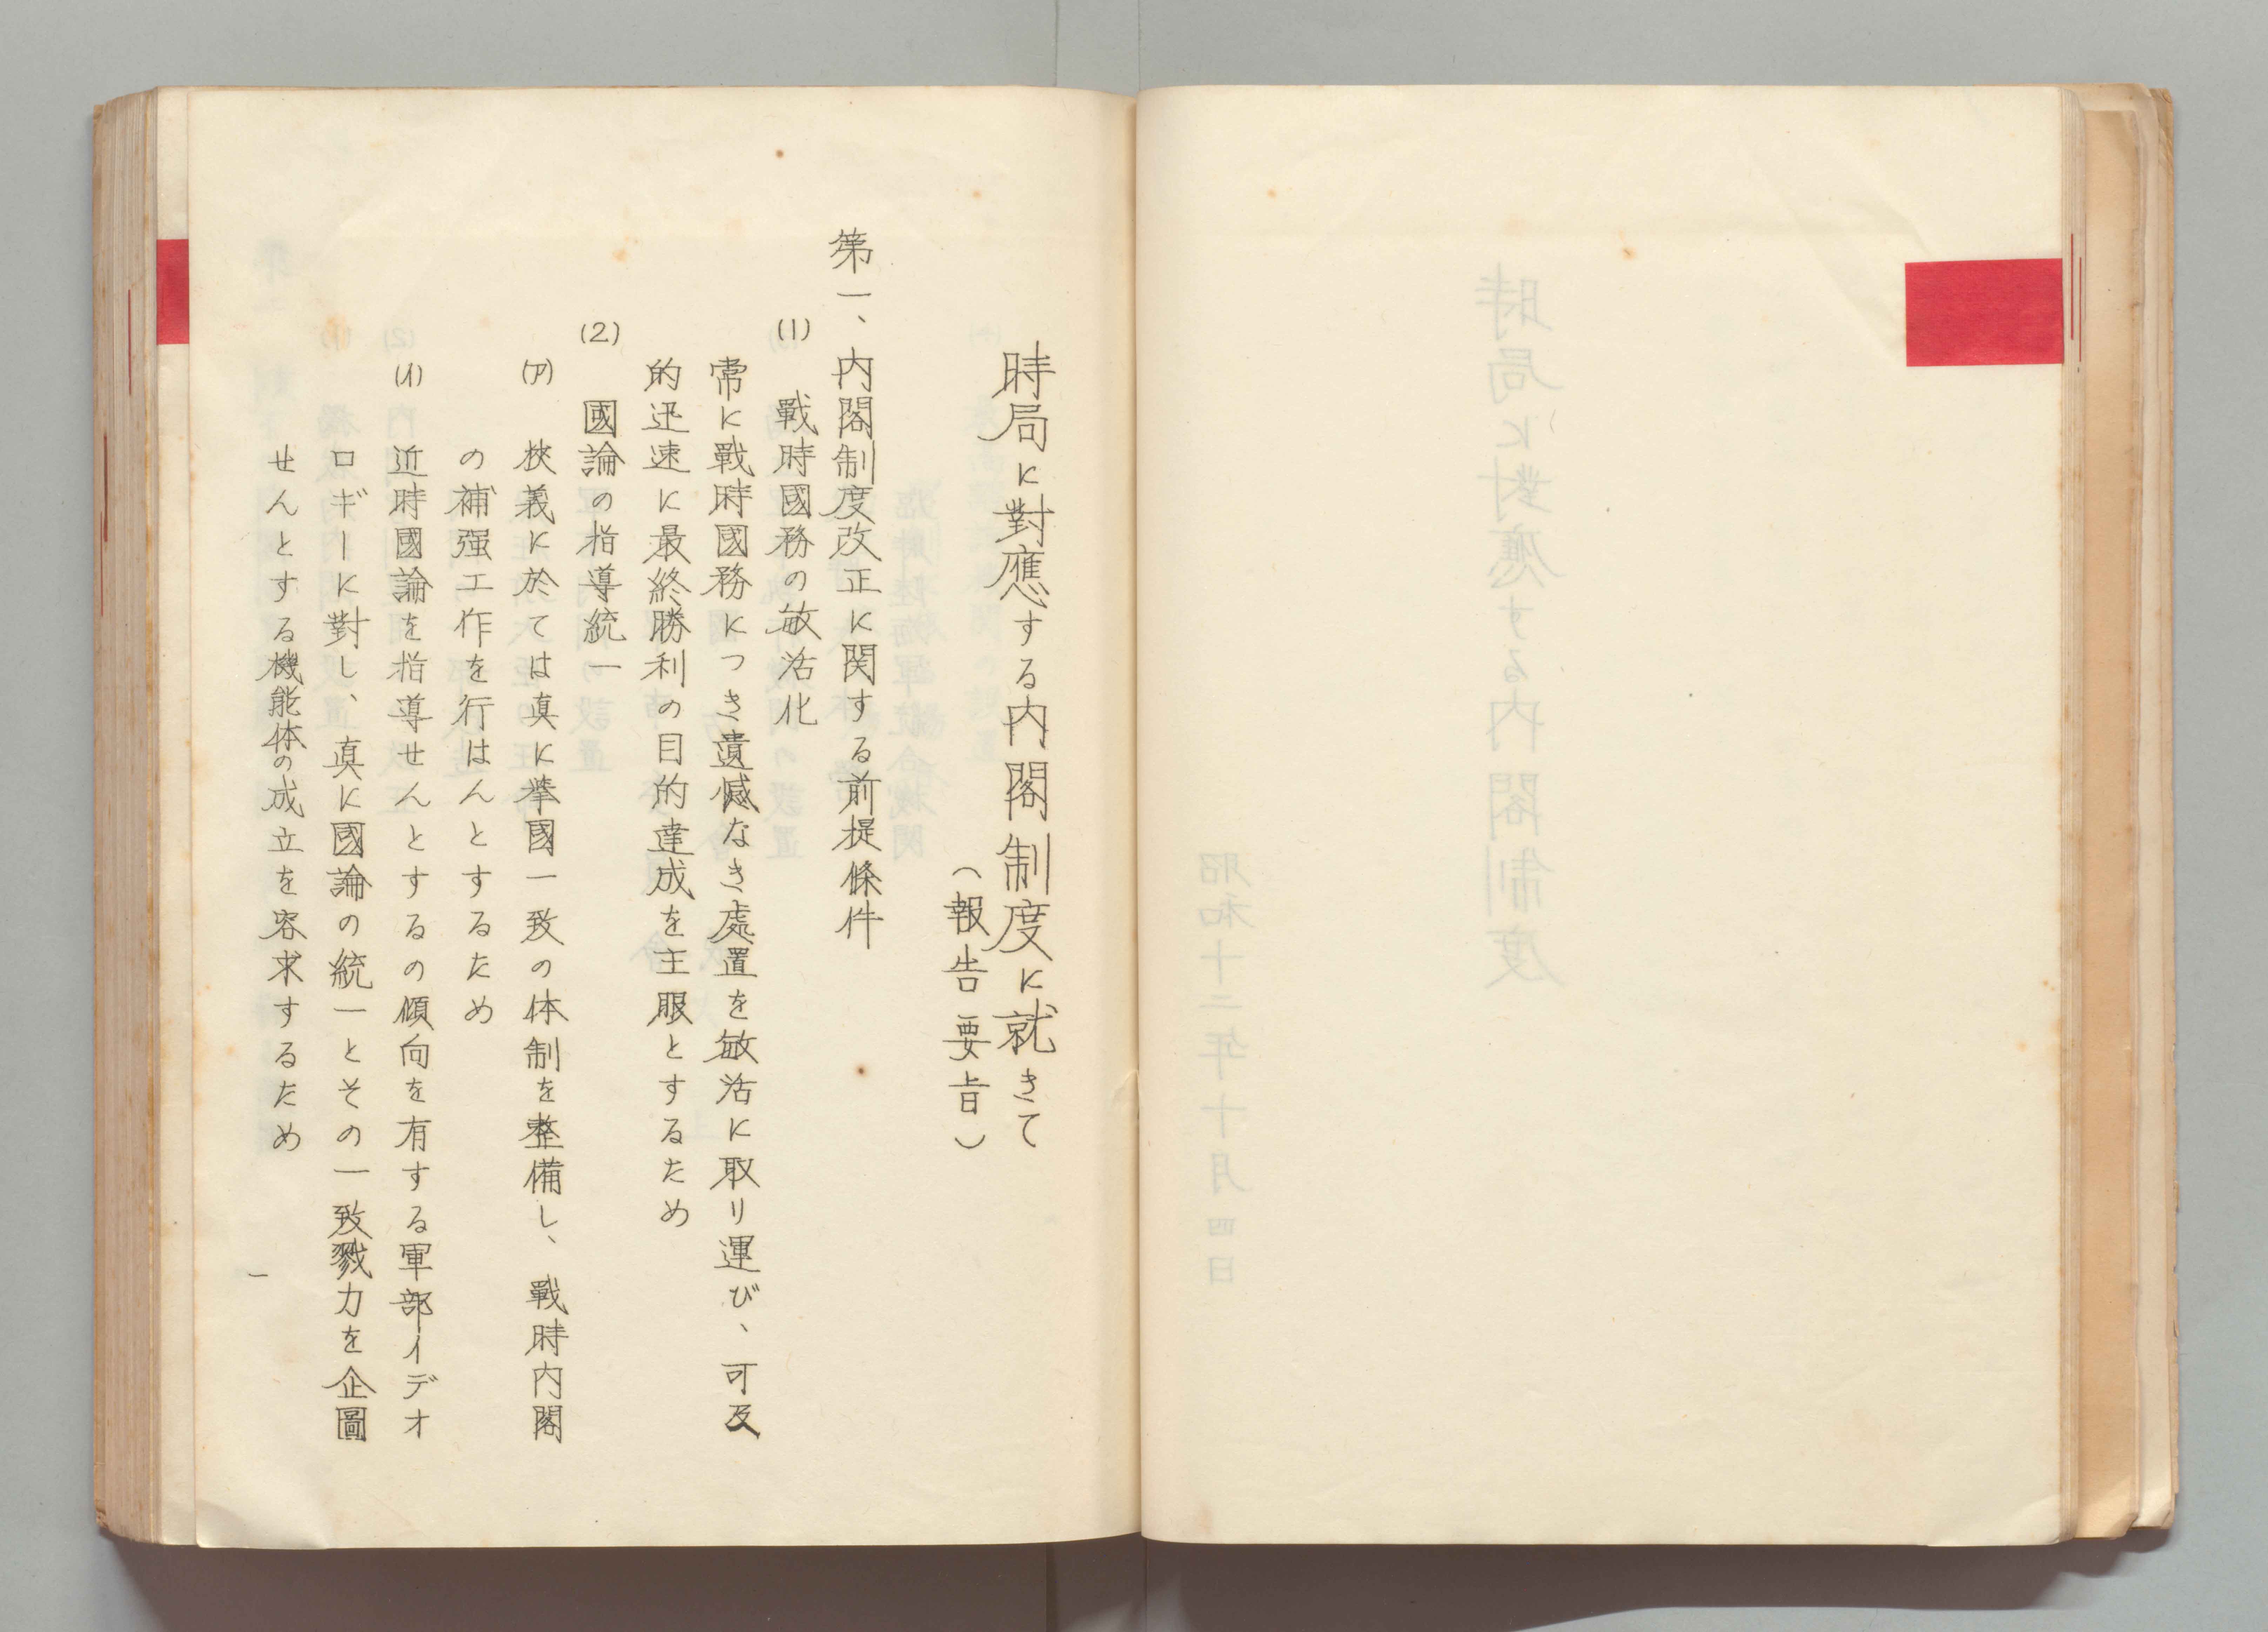 時局に對應する内閣制度
昭和十二年十月四日
時局に對應する内閣制度に就きて
（報告要旨）
第一、内閣制度改正に関する前提條件
(1) 戰時國務の敏活化
常に戰時國務につき遺憾なき處置を敏活に取り運び、可及
的迅速に最終勝利の目的達成を主服とするため
(2) 國論の指導統一
(ア) 狹義に於ては真に擧國一致の体制を整備し、戰時内閣
の補强工作を行はんとするため
(イ) 近時國論を指導せんとするの傾向を有する軍部イデオ
ロギーに對し、真に國論の統一とその一致戮力を企圖
せんとする機能体の成立を容求するため
一